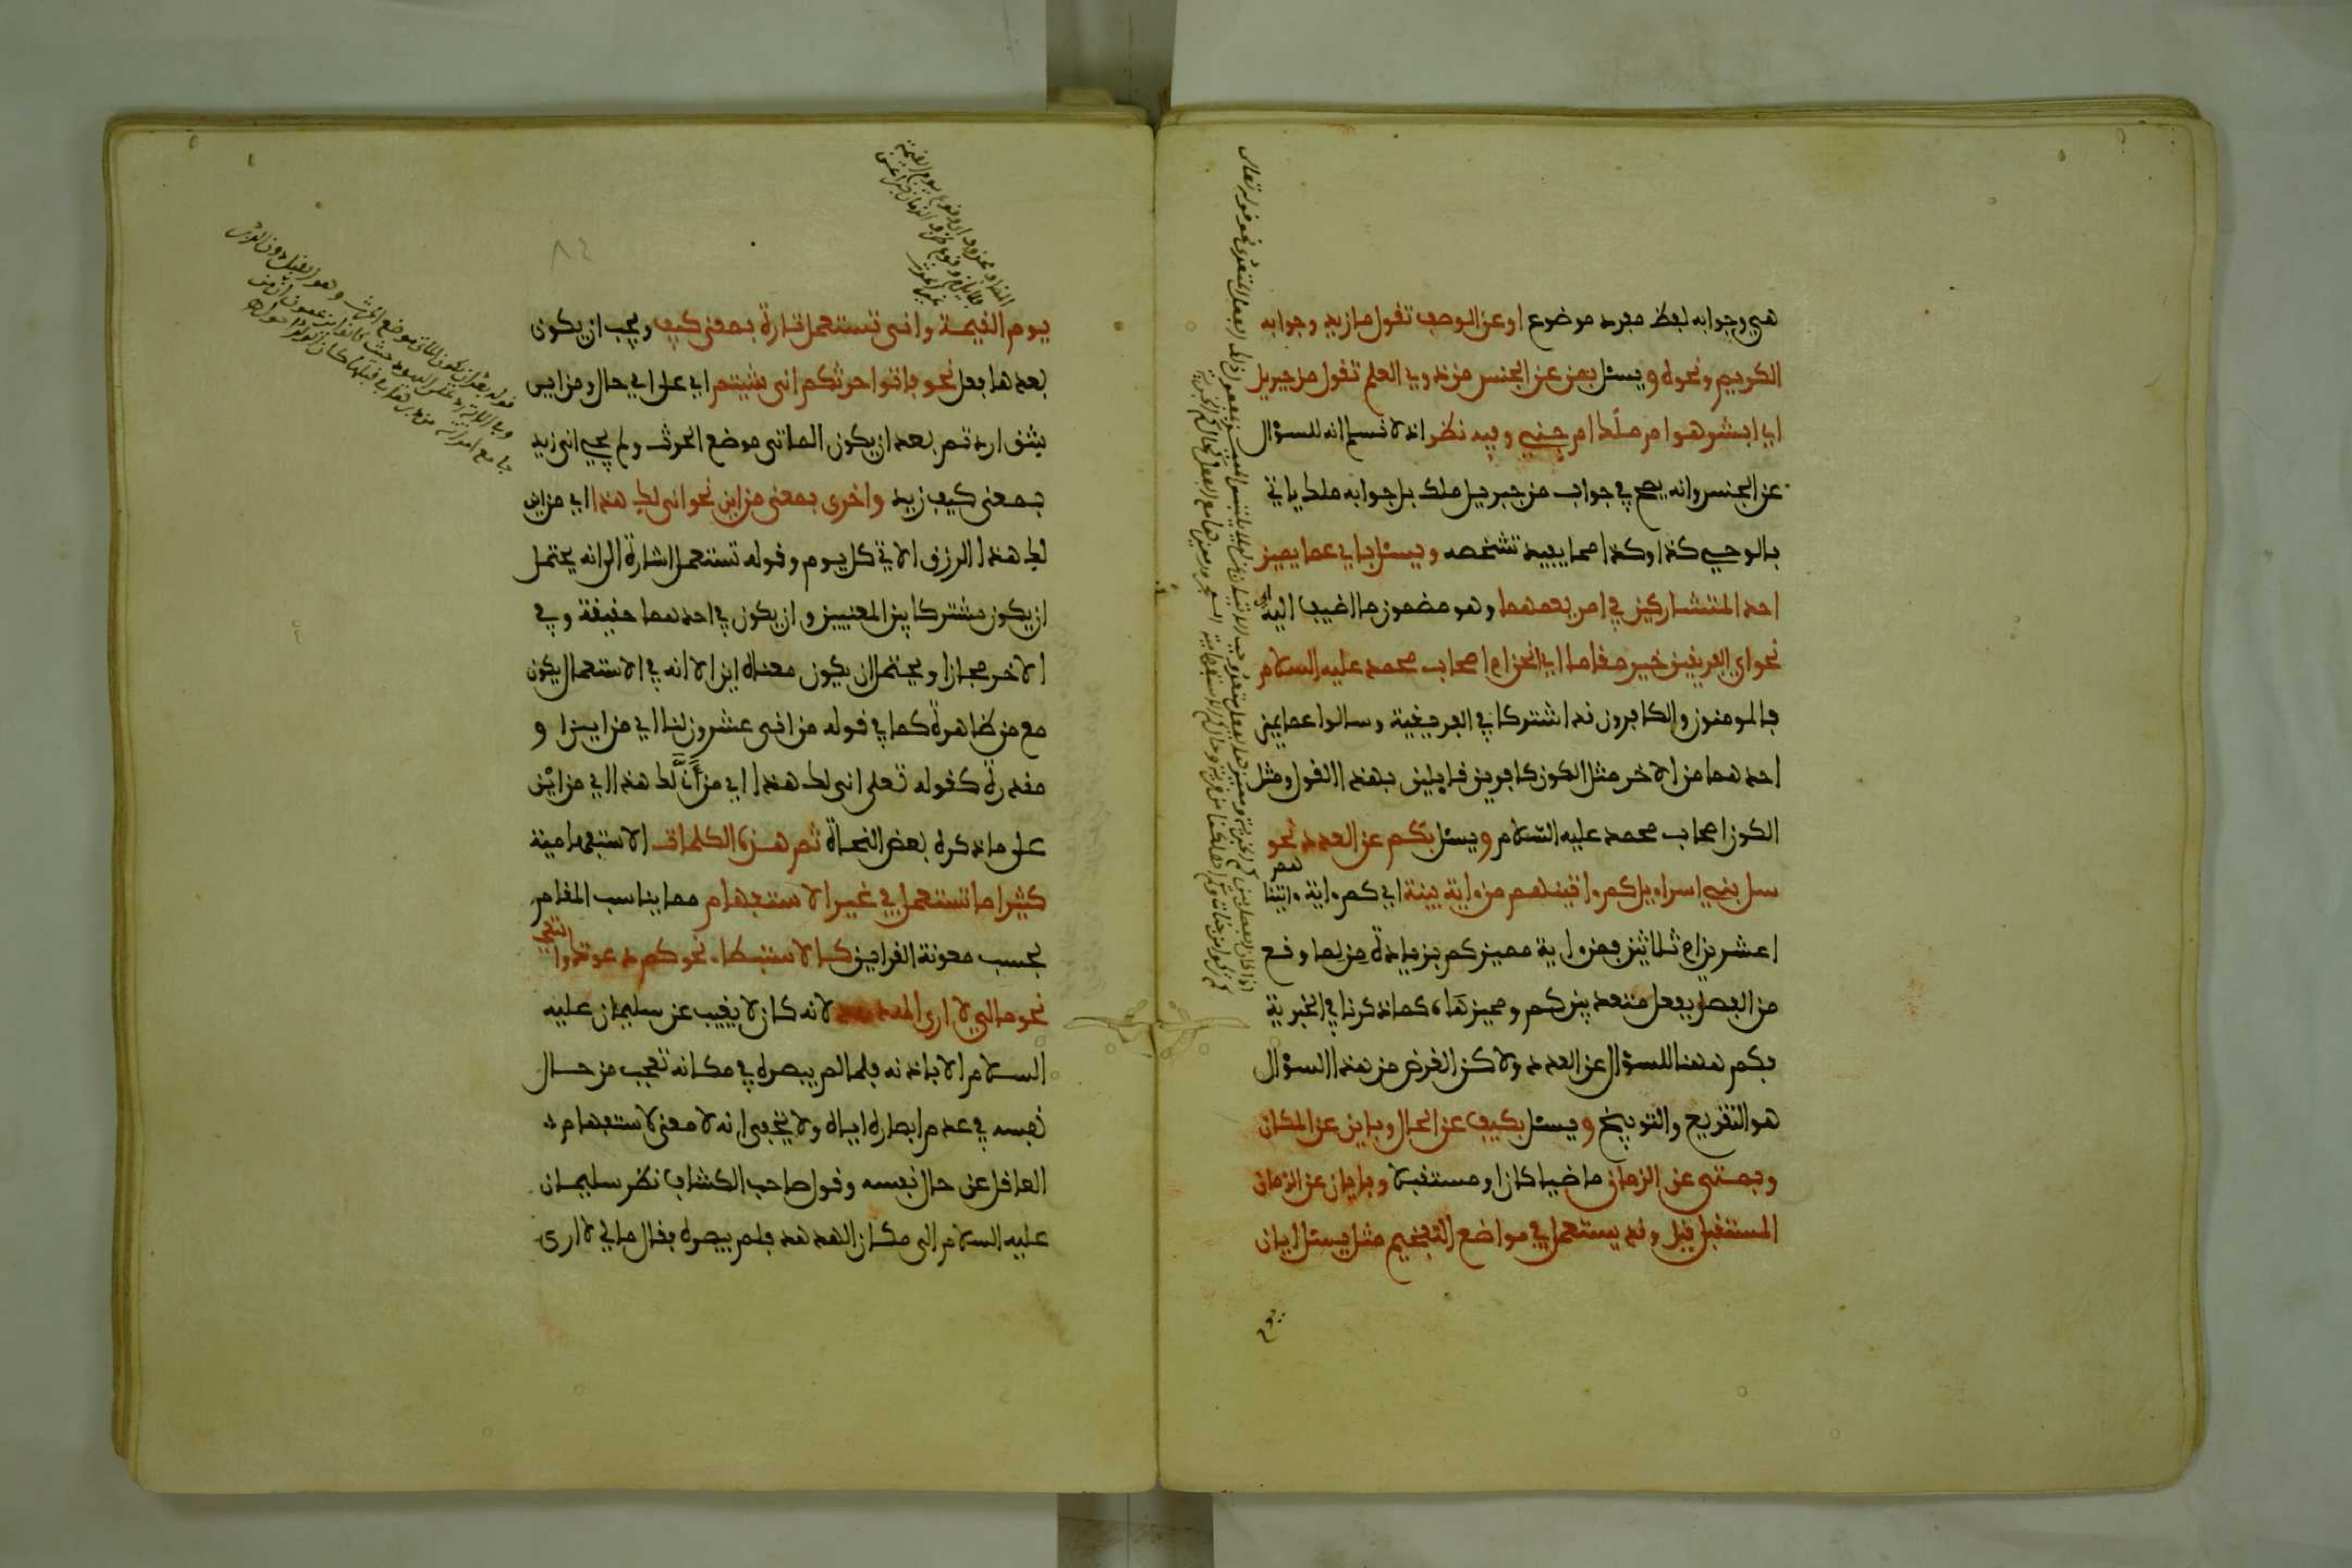 هي وجوابه لفظ مفرد موضوع او عن الوصف تقول ما زيد وجوابه
الكريم ونحوه ويسئل بمن عن الجنس من ذوي العلم تقول من جبريل
اي ابشر هو ام ملك ام جني وفيه نظر اذ لا نسلم انه للسؤال
عن الجنس وانه يصح في جواب من جبريل ملك بل جوابه ملك ياتي
بالوحي كذا وكذا مما يفيد تشخصه ويسئل باي عما يميز
احد المتشاركين في امر يعمهما وهو مضمون ما اضيف اليه اي
نحو اي الفريقين خير مقاما اي انحن ام اصحاب محمد عليه السلام
فالمومنون والكافرون قد اشتركا في الفريقية وسالوا عما يميز
احدهما من الاخر مثل الكون كافرين قايلين بهذا القول ومثل
الكون اصحاب محمد عليه السلام ويسئل بكم عن العدد نحو
سل بني اسراءيل كم ءاتيناهم من ءاية بينة اي كم ءاية ءاتيناهم
اعشرين ام ثلاثين فمن ءاية مميز كم بزيادة من لما وقع
من الفصل بفعل متعد بين كم ومميزها كما ذكرنا في الخبرية
فكم ههنا للسؤال عن العدد ولاكن الغرض من هذا السؤال
هو التقريع والتوبيخ ويسئل بكيف عن الحال وباين عن المكان
وبمتى عن الزمان ماضيا كان او مستقبلا وبايان عن الزمان
المستقبل قيل وقد يستعمل في مواضع التفخيم مثل يسئل ايان
يوم
يوم القيمة وانى تستعمل تارة بمعنى كيف ويجب ان يكون
بعدها فعل نحو فاتوا حرثكم انى شيتم اي على اي حال ومن اي
شق اردتم بعد ان يكون الماتى موضع الحرث ولم يجي انى زيد
بمعنى كيف زيد واخرى بمعنى من اين نحو انى لك هذا اي من اين
لك هذا الرزق الاتي كل يوم وقوله تستعمل اشارة الى انه يحتمل
ان يكون مشتركا بين المعنيين وان يكون في احدهما حقيقة وفي
الاخر مجازا ويحتمل ان يكون معناه اين الا انه في الاستعمال يكون
مع من ظاهرة كما في قوله من انى عشرون لنا اي من اين او
مقدرة كقوله تعلى انى لك هذا اي من انى لك هذا اي من اين
على ما ذكره بعض النحاة ثم هذه الكلمات الاستفهامية
كثيرا ما تستعمل في غير الاستفهام مما يناسب المقام
بحسب معونة القراين كالاستبطاء نحو كم دعوتك والتعجب
نحو ما لي لا ارى الهدهد لانه كان لا يغيب عن سليمان عليه
السلام الا باذنه فلما لم يبصره في مكانه تعجب من حال
نفسه في عدم ابصاره اياه ولا يخفى انه لا معنى لاستفهام
العاقل عن حال نفسه وقول صاحب الكشاف نظر سليمان
عليه السلام الى مكان الهدهد فلم يبصره فقال ما لي لا ارى